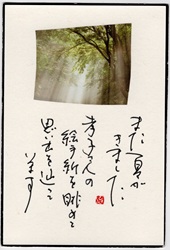 また夏が
きました
孝子さんの
絵手紙を眺めて
思い出を辿って
います